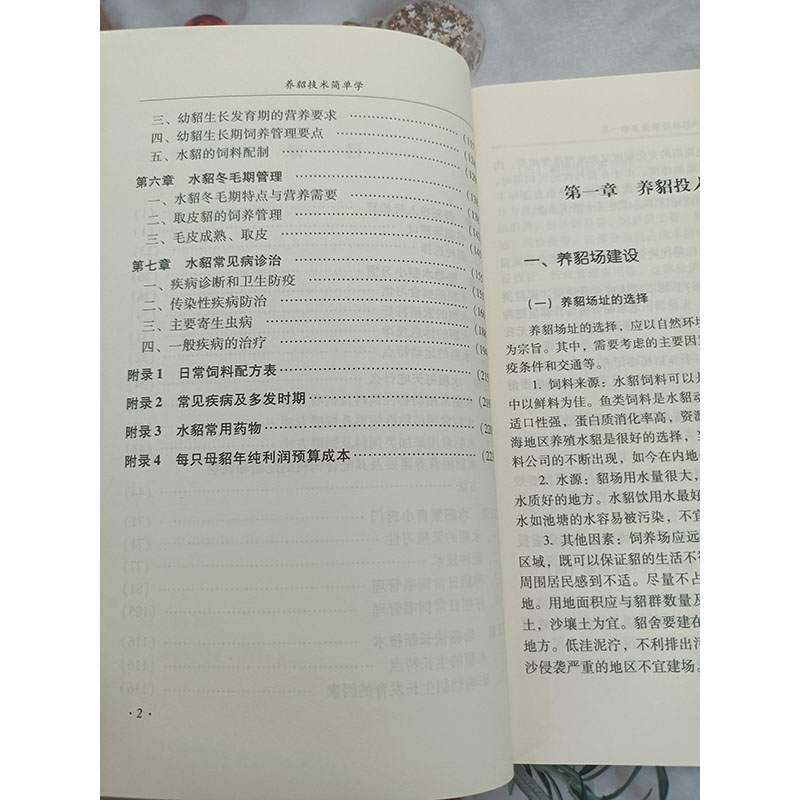 养貂技术简单学
三、幼貂生长发育期的营养要求
四、幼貂生长期饲养管理要点
五、水貂的饲料配制
第六章 水貂冬毛期管理
一、水貂冬毛期特点与营养需要
二、取皮貂的饲养管理
三、毛皮成熟、取皮
第七章 水貂常见病诊治
一、疾病诊断和卫生防疫
二、传染性疾病防治
三、主要寄生虫病
四、一般疾病的治疗
附录1 日常饲料配方表
附录2 常见疾病及多发时期
附录3 水貂常用药物
附录4 每只母貂年纯利润预算成本
·2·
第一章 养貂投入
一、养貂场建设
（一）养貂场址的选择
养貂场址的选择，应以自然环境
为宗旨。其中，需要考虑的主要因
疫条件和交通等。
1. 饲料来源：水貂饲料可以是
中以鲜料为佳。鱼类饲料是水貂
适口性强，蛋白质消化率高，资源
海地区养殖水貂是很好的选择，
料公司的不断出现，如今在内地
2. 水源：貂场用水量很大，
水质好的地方。水貂饮用水最好
水如池塘的水容易被污染，不宜
3. 其他因素：饲养场应远
区域，既可以保证貂的生活不
周围居民感到不适。尽量不占
地。用地面积应与貂群数量及
土，沙壤土为宜。貂舍要建在
地方。低洼泥泞，不利排出污
沙侵袭严重的地区不宜建场。